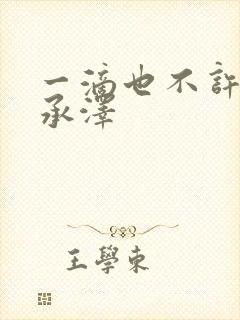 一滴也不許
承澤
王學東